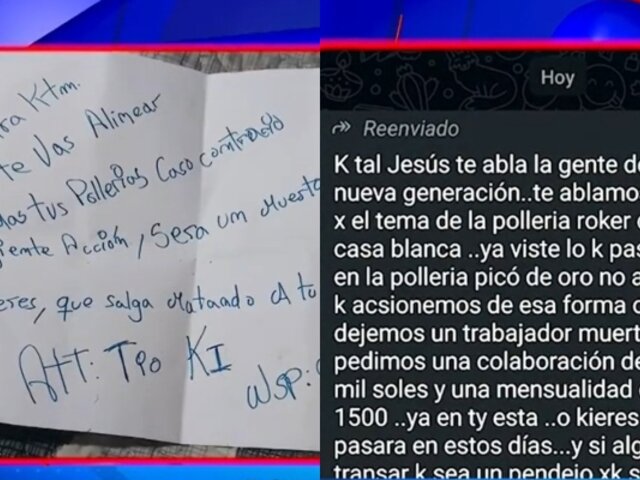 ra Ktm.
te Vas Alinear
tus Pollerias Caso contrario
Acción, Sera un Muerto
eres, que salga Matando A tu
Att: Tio KI
WSP:
Hoy
Reenviado
K tal Jesús te abla la gente de
nueva generación..te ablamo
x el tema de la polleria roker
casa blanca ..ya viste lo k pas
en la polleria picó de oro no a
k acsionemos de esa forma
dejemos un trabajador muert
pedimos una colaboración de
mil soles y una mensualidad
1500 ..ya en ty esta ..o kieres
pasara en estos días...y si alg
transar k sea un pendejo xk s